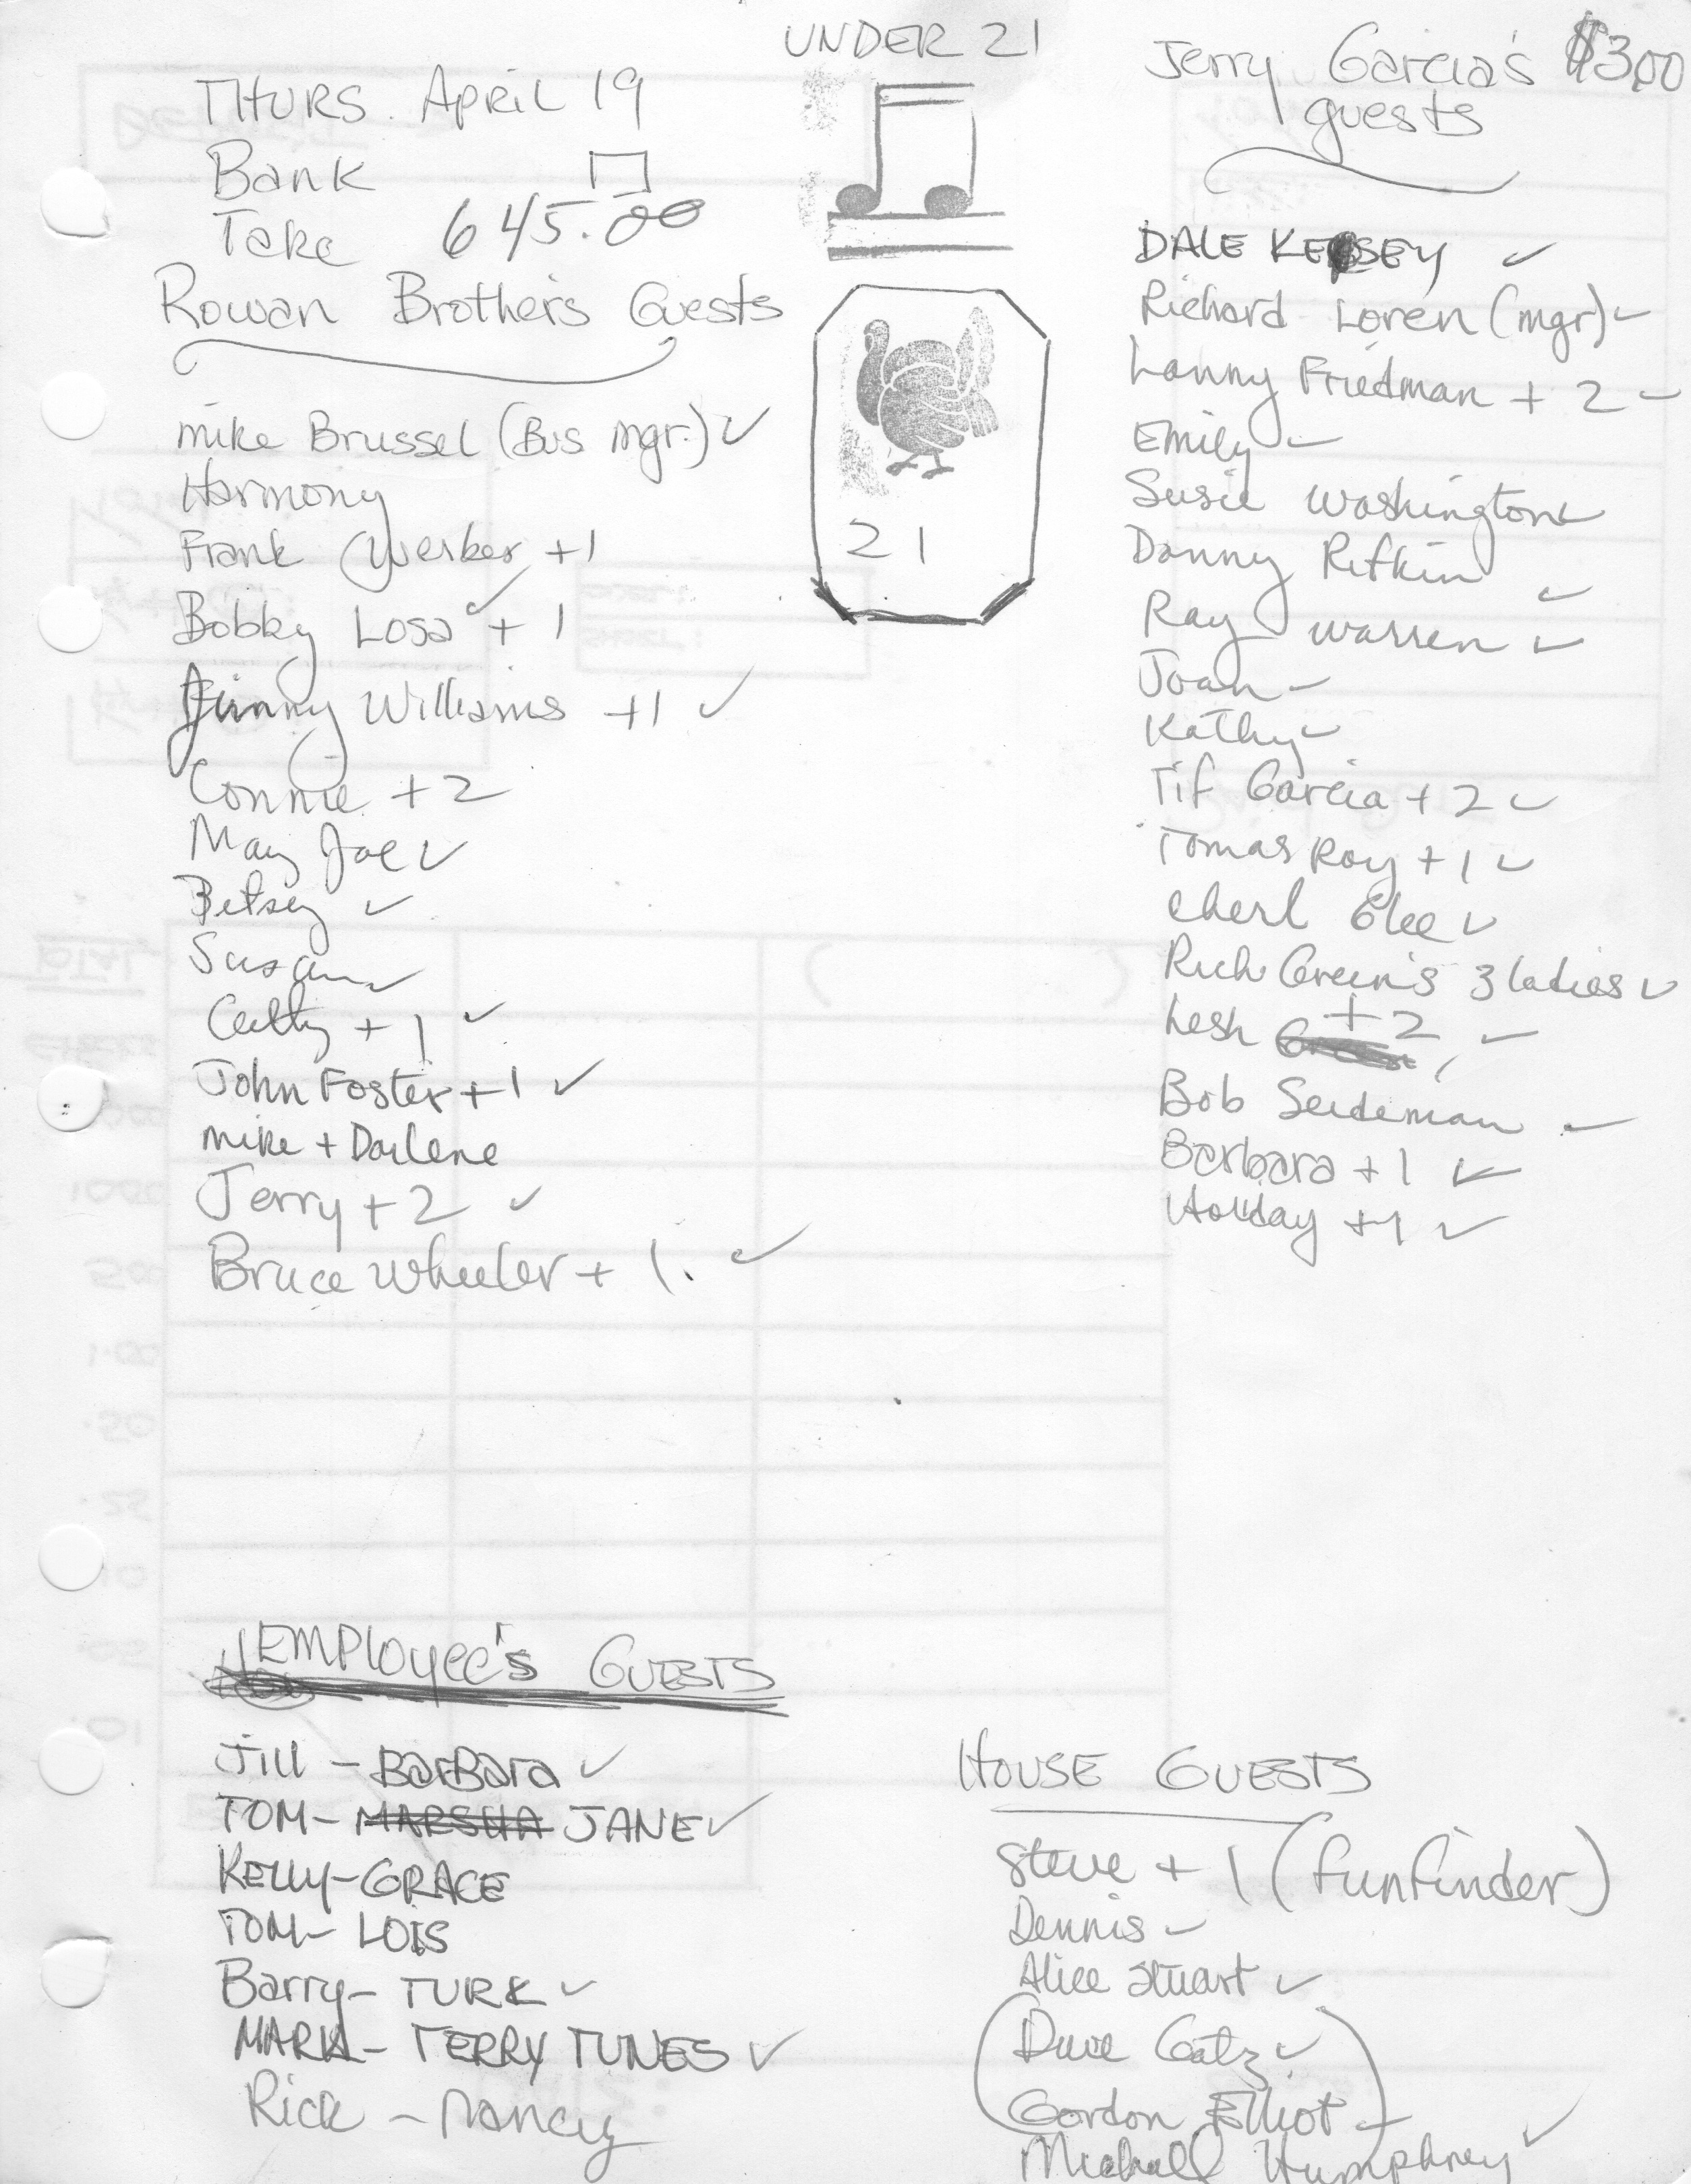 UNDER 21
THURS. APRIL 19
Bank
Take 645.00
Rowan Brothers Guests
mike Brussel (Bus mgr.) ✓
Harmony
Frank Werber +1
Bobby Losa ✓ + 1
Jinny Williams +1 ✓
Connie +2
May Joe ✓
Betsey ✓
Susan ✓
Cathy + 1 ✓
John Foster +1 ✓
mike + Darlene
Jerry + 2 ✓
Bruce Wheeler + 1. ✓
21
Jerry Garcia's $3.00
guests
DALE KESEY ✓
Richard Loren (mgr) ✓
Lanny Friedman + 2 ✓
Emily ✓
Susie Washington ✓
Danny Rifkin ✓
Ray Warren ✓
Joan ✓
Kathy ✓
Tif Garcia + 2 ✓
Tomas Roy +1 ✓
Rich Green's 3 ladies ✓
Lesh +2 ✓
Bob Seideman ✓
Barbara +1 ✓
Holiday +1 ✓
EMPLOYEE'S GUESTS
Jill - BarBara ✓
TOM - MARSHA JANE ✓
KELLY - GRACE
TOM - LOIS
Barry - TURK ✓
MARK - TERRY TUNES ✓
Rick - Nancy
HOUSE GUESTS
Steve + 1 (funfinder)
Dennis ✓
Alice Stuart ✓
(Dave Gatz ✓
Gordon Elliot ✓)
Michael Humphrey ✓